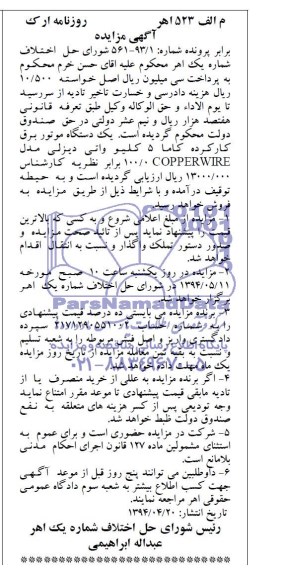 م الف ۵۲۳ اهر روزنامه ارک
آگهی مزایده
برابر پرونده شماره: ۹۳/۱-۵۶۱ شورای حل اختلاف
شماره یک اهر محکوم علیه اقای حسن خرم محکوم
به پرداخت سی میلیون ریال اصل خواسته ۱۰/۵۰۰
ریال هزینه دادرسی و خسارت تاخیر تادیه از سررسید
تا یوم الاداء و حق الوکاله وکیل طبق تعرفه قانونی
هفتصد هزار ریال و نیم عشر دولتی در حق صندوق
دولت محکوم گردیده است. یک دستگاه موتور برق
کارکرده کاما ۵ کیلیو واتی دیزلی مدل
COPPERWIRE ۱۰۰/۰ برابر نظریه کارشناس
۱۳/۰۰۰/۰۰۰ ریال ارزیابی گردیده است و به حیطه
توقیف درآمده و با شرایط ذیل از طریق مزایده به
فروش خواهد رسید.
۱- مزایده از مبلغ اعلامی شروع و به کسی که بالاترین
قیمت را پیشنهاد نماید پس از تائید صحت مزایده و
صدور دستور تملک و گذار و نسبت به انتقال اقدام
خواهد شد.
۲- مزایده در روز یکشنبه ساعت ۱۰ صبح مورخه
۱۳۹۴/۰۵/۱۱ در شورای حل اختلاف شماره یک اهر
برگزار خواهد شد.
۳- برنده مزایده می بایستی ده درصد قیمت پیشنهادی
را به شماره حساب سپرده
دادگستری واریز و اصل فیش مربوطه را به شعبه تسلیم
و نسبت به بقیه ثمن معامله مزایده از تاریخ روز مزایده
یک ماه مهلت داده خواهد شد.
۴- اگر برنده مزایده به عللی از خرید منصرف یا از
تادیه مابقی قیمت پیشنهادی تا موعد مقرر امتناع نماید
وجه تودیعی پس از کسر هزینه های متعلقه به نفع
صندوق دولت ظبط خواهد شد.
۵- شرکت در مزایده حضوری است و برای عموم به
استثنای مشمولین ماده ۱۲۷ قانون اجرای احکام مدنی
بلامانع است.
۶- داوطلبین می توانند پنج روز قبل از موعد آگهی
جهت کسب اطلاع بیشتر به شعبه سوم دادگاه عمومی
حقوقی اهر مراجعه نمایند.
تاریخ انتشار: ۱۳۹۴/۰۴/۲۰
رئیس شورای حل اختلاف شماره یک اهر
عبداله ابراهیمی
ParsNamadData
۰۲۱-۸۸۳۴۹۶۷۰